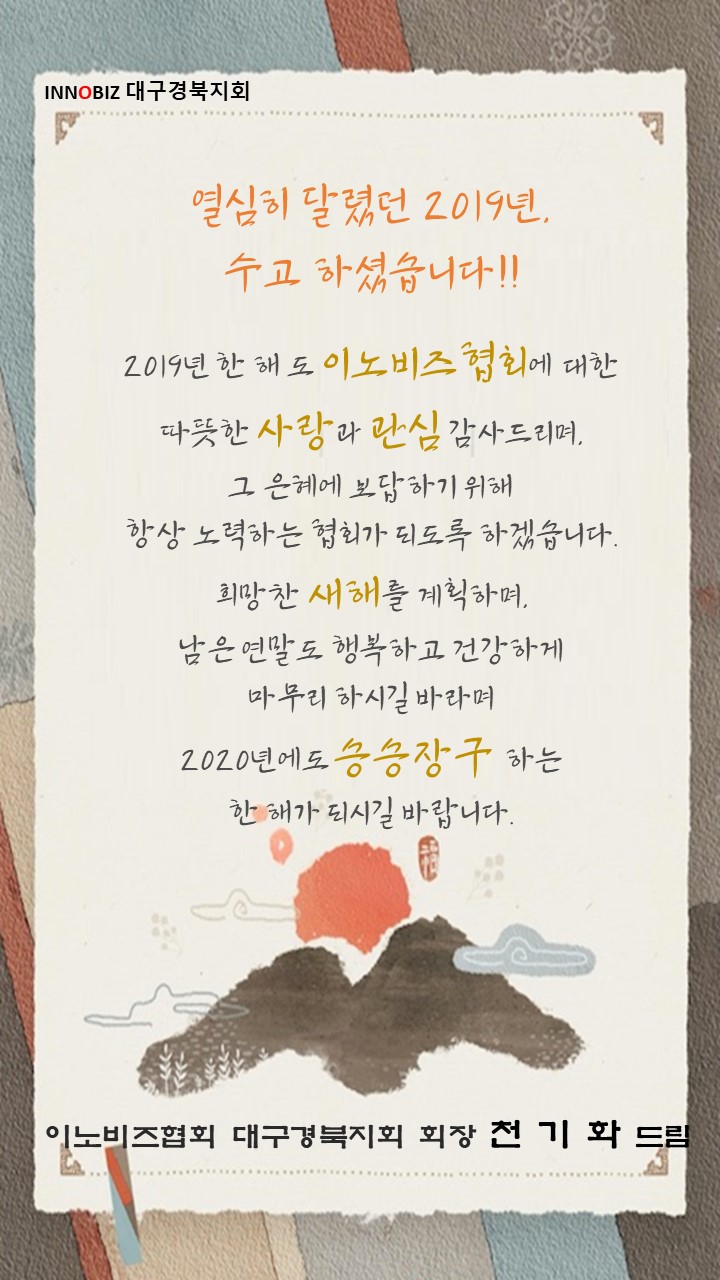 INNOBIZ 대구경북지회
열심히 달렸던 2019년,
수고 하셨습니다!!
2019년 한 해 도 이노비즈협회에 대한
따뜻한 사랑과 관심 감사드리며,
그 은혜에 보답하기 위해
항상 노력하는 협회가 되도록 하겠습니다.
희망찬 새해를 계획하며,
남은 연말도 행복하고 건강하게
마무리 하시길 바라며
2020년에도 승승장구 하는
한 해가 되시길 바랍니다.
이노비즈협회 대구경북지회 회장 천 기 화 드림